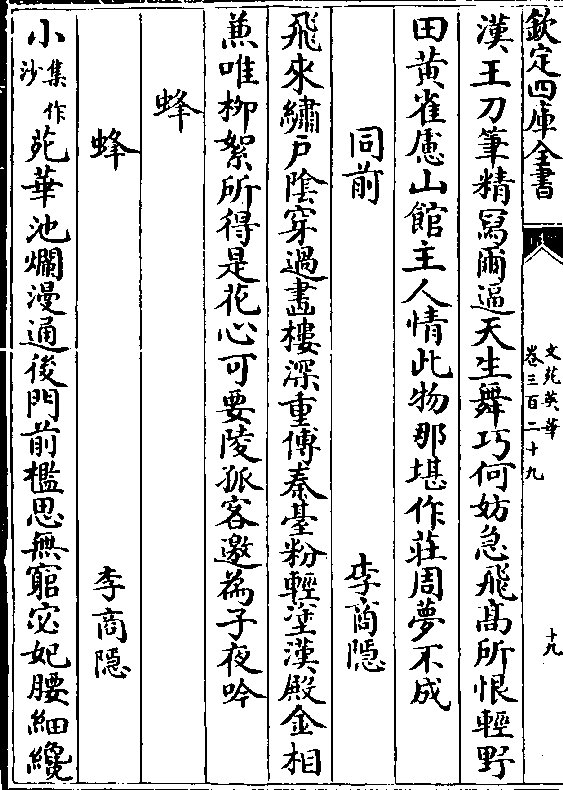 欽定四庫全書
文苑英華
卷三百二十九
十九
漢王刀筆精冩爾逼天生舞巧何妨急飛髙所恨輕野
田黄雀慮山館主人情此物那堪作莊周夢不成
同前
李商隠
飛來繡户隂穿過畵樓深重傅秦臺粉輕塗漢殿金相
蕉唯柳絮所得是花心可要陵孤客邀為子夜吟
蜂
蜂
李商隠
小集作沙苑華池爛漫通後門前檻思無窮宓妃腰細纔